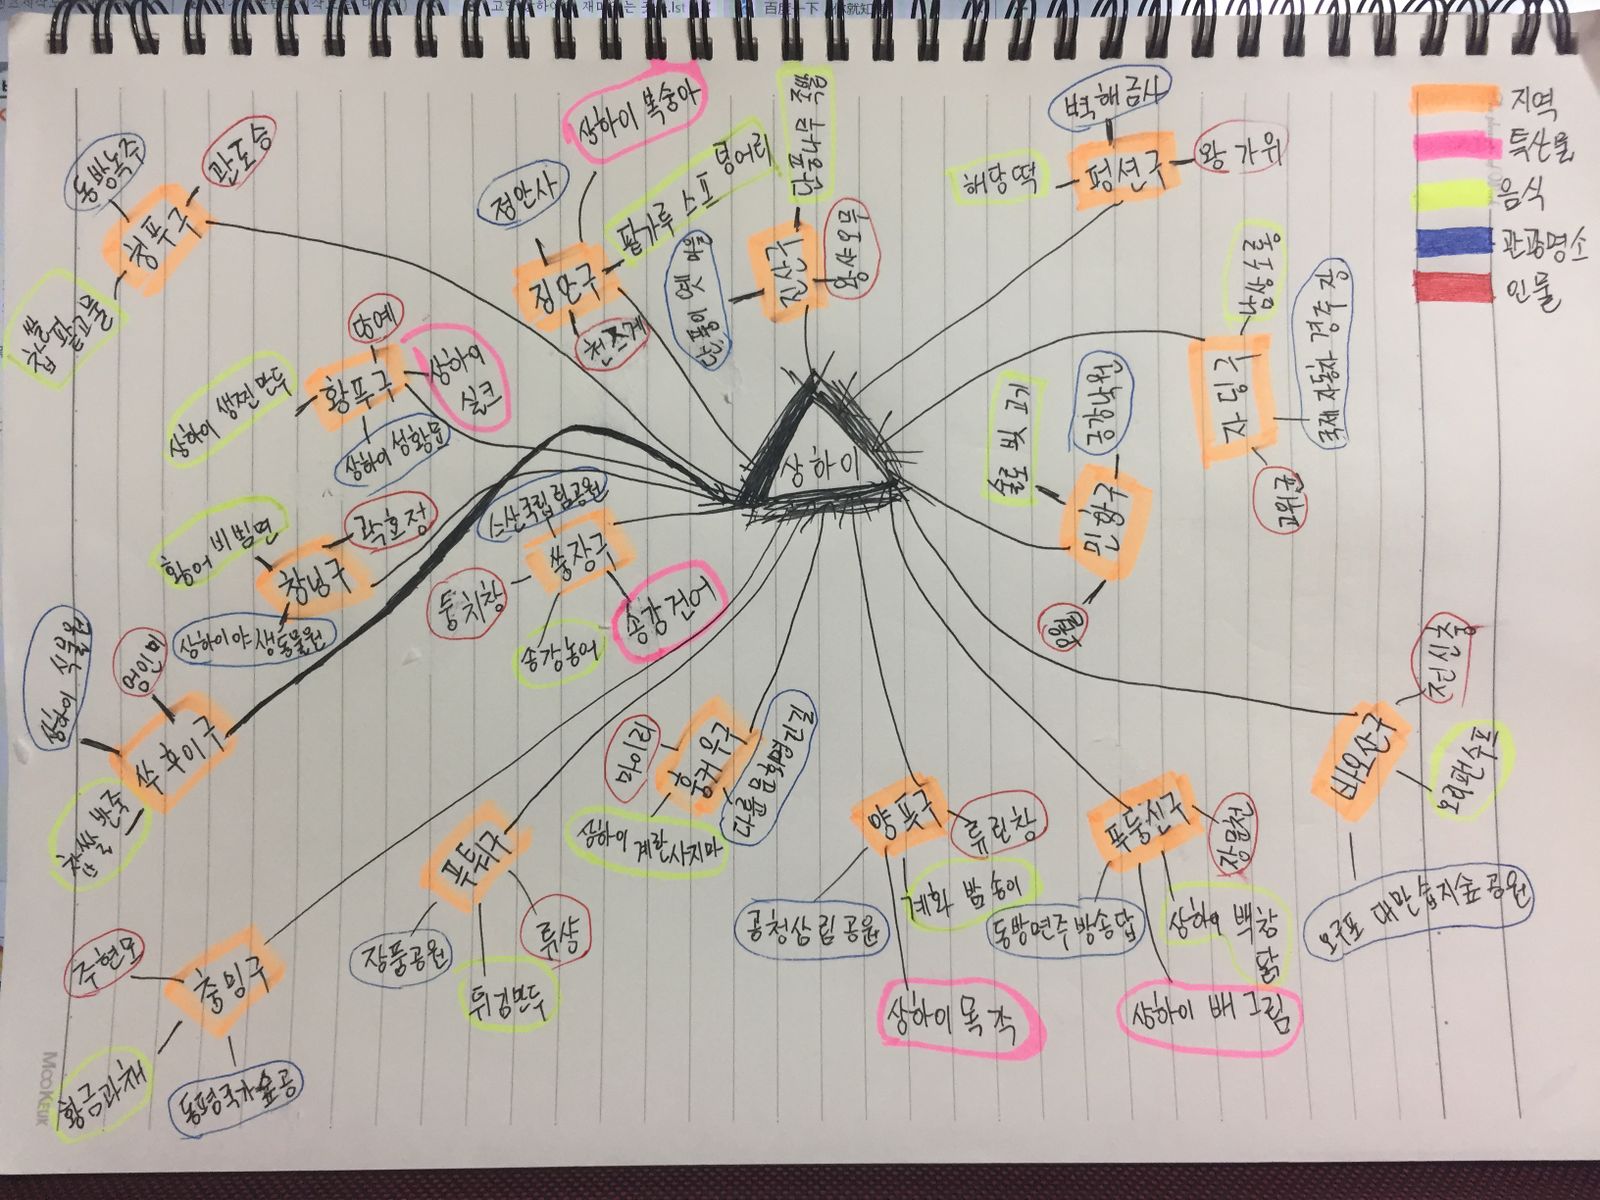 지역
특산물
음식
관광명소
인물
상하이
칭푸구
동방녹주
관도승
찹쌀
팥고물
징안구
정안사
상하이 복숭아
팥가루 스프
덩어리
천쯔계
진산구
단풍나무 족발
펑셴구
벽해금사
왕가위
해당떡
자딩구
난샹샤오롱
국제 자동차 경주장
고위균
민항구
황푸구
상하이
실크
상하이 생찐만두
상하이 성황묘
창닝구
곽효정
황어 비빔면
상하이야생동물원
쑹장구
서산국립림공원
송강농어
송강건어
쑤후이구
엄인미
상하이 식물원
찹쌀 반죽
훙커우구
마이리
상하이 계란사지마
다륜문화명인길
푸퉈구
장풍공원
튀김만두
류샹
충밍구
주현모
황금과채
동평국가숲공
양푸구
류린창
계화 밤송이
공청삼림공원
상하이목각
푸둥신구
장윤천
동방면주방송탑
상하이 백참
닭
상하이 배 그림
바오산구
오리패수프
오송포 대만습지숲공원
MOOKEUK